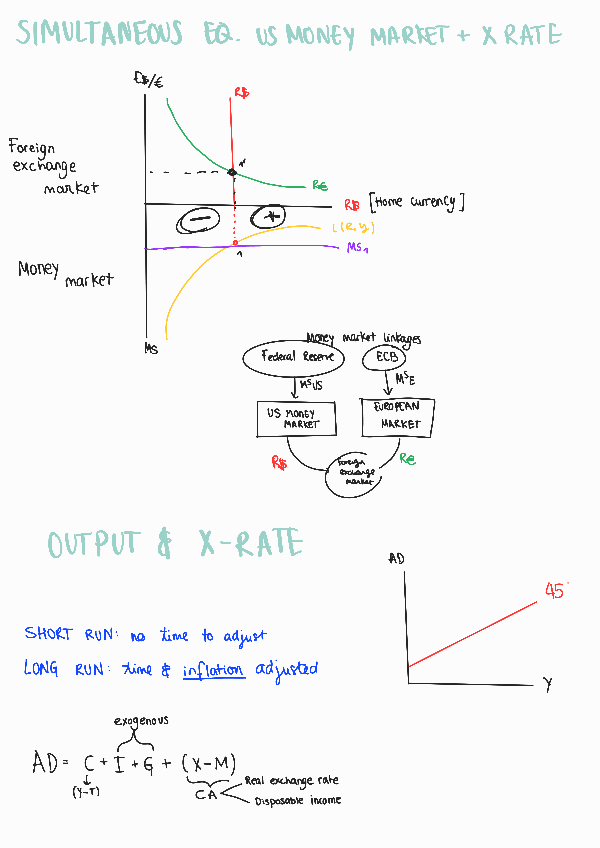 SIMULTANEOUS EQ. US MONEY MARKET + X RATE
E$/€
R$
Foreign
exchange
market
1'
R€
R$ [Home currency]
- +
L(R,Y)
MS1
1
Money
market
MS
Money market linkages
Federal Reserve ECB
MSUS MSE
US MONEY
MARKET
EUROPEAN
MARKET
R$ R€
Foreign
exchange
market
OUTPUT & X-RATE
AD
45°
Y
SHORT RUN: no time to adjust
LONG RUN: time & inflation adjusted
exogenous
AD = C + I + G + (X-M)
(Y-T)
CA
Real exchange rate
Disposable income